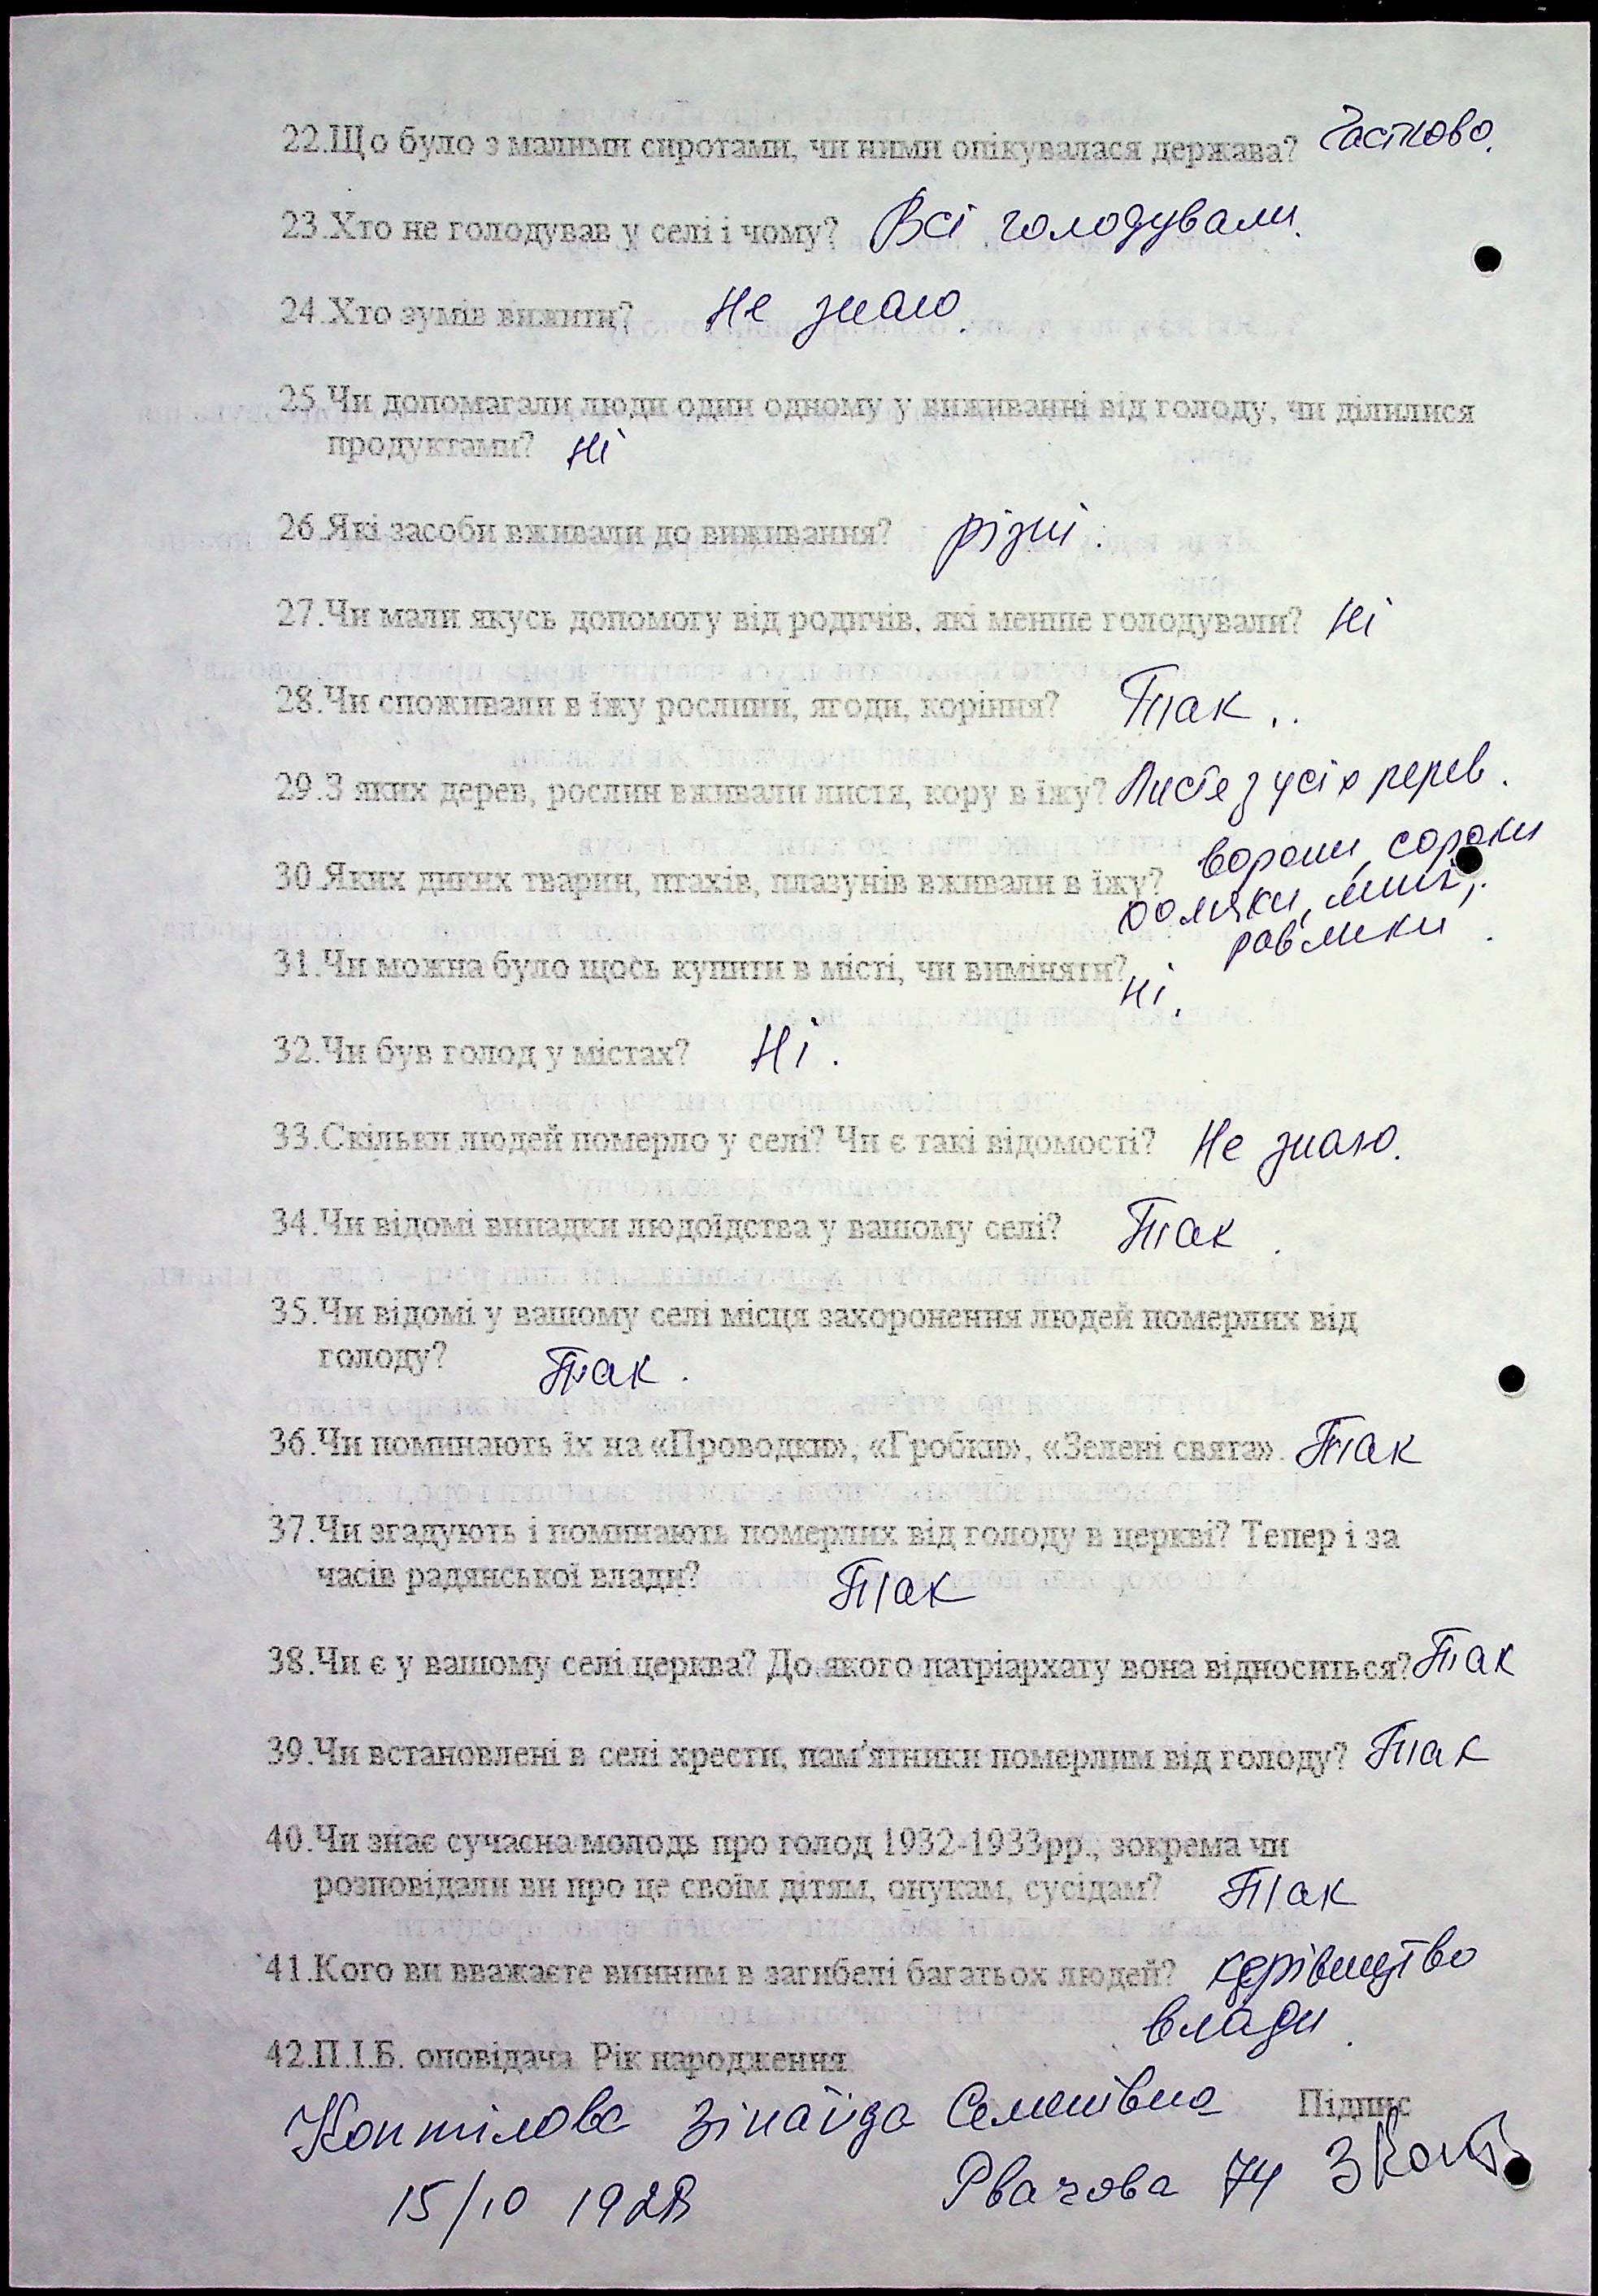 22.Що було з малими сиротами, чи ними опікувалася держава? Частково.
23.Хто не голодував у селі і чому? Всі голодували.
24.Хто зумів вижити? Не знаю.
25.Чи допомагали люди один одному у виживанні від голоду, чи ділилися
продуктами? Ні
26.Які засоби вживали до виживання? різні.
27.Чи мали якусь допомогу від родичів, які менше голодували? Ні
28.Чи споживали в їжу рослини, ягоди, коріння? Так..
29.З яких дерев, рослин вживали листя, кору в їжу? Листя з усіх дерев.
30.Яких диких тварин, птахів, плазунів вживали в їжу? ворони, сороки
хом'яки, миші,
равлики.
31.Чи можна було щось купити в місті, чи виміняти?
Ні.
32.Чи був голод у містах? Ні.
33.Скільки людей померло у селі? Чи є такі відомості? Не знаю.
34.Чи відомі випадки людоїдства у вашому селі? Так.
35.Чи відомі у вашому селі місця захоронення людей померлих від
голоду? Так.
36.Чи поминають їх на «Проводки», «Гробки», «Зелені свята». Так
37.Чи згадують і поминають померлих від голоду в церкві? Тепер і за
часів радянської влади? Так
38.Чи є у вашому селі церква? До якого патріархату вона відноситься? Так
39.Чи встановлені в селі хрести, пам'ятники померлим від голоду? Так
40.Чи знає сучасна молодь про голод 1932-1933рр., зокрема чи
розповідали ви про це своїм дітям, онукам, сусідам? Так
41.Кого ви вважаєте винним в загибелі багатьох людей? керівництво
влади.
42.П.І.Б. оповідача. Рік народження.
Коптілова Зінаїда Семенівна Підпис
15/10 1928 Рвачова 74